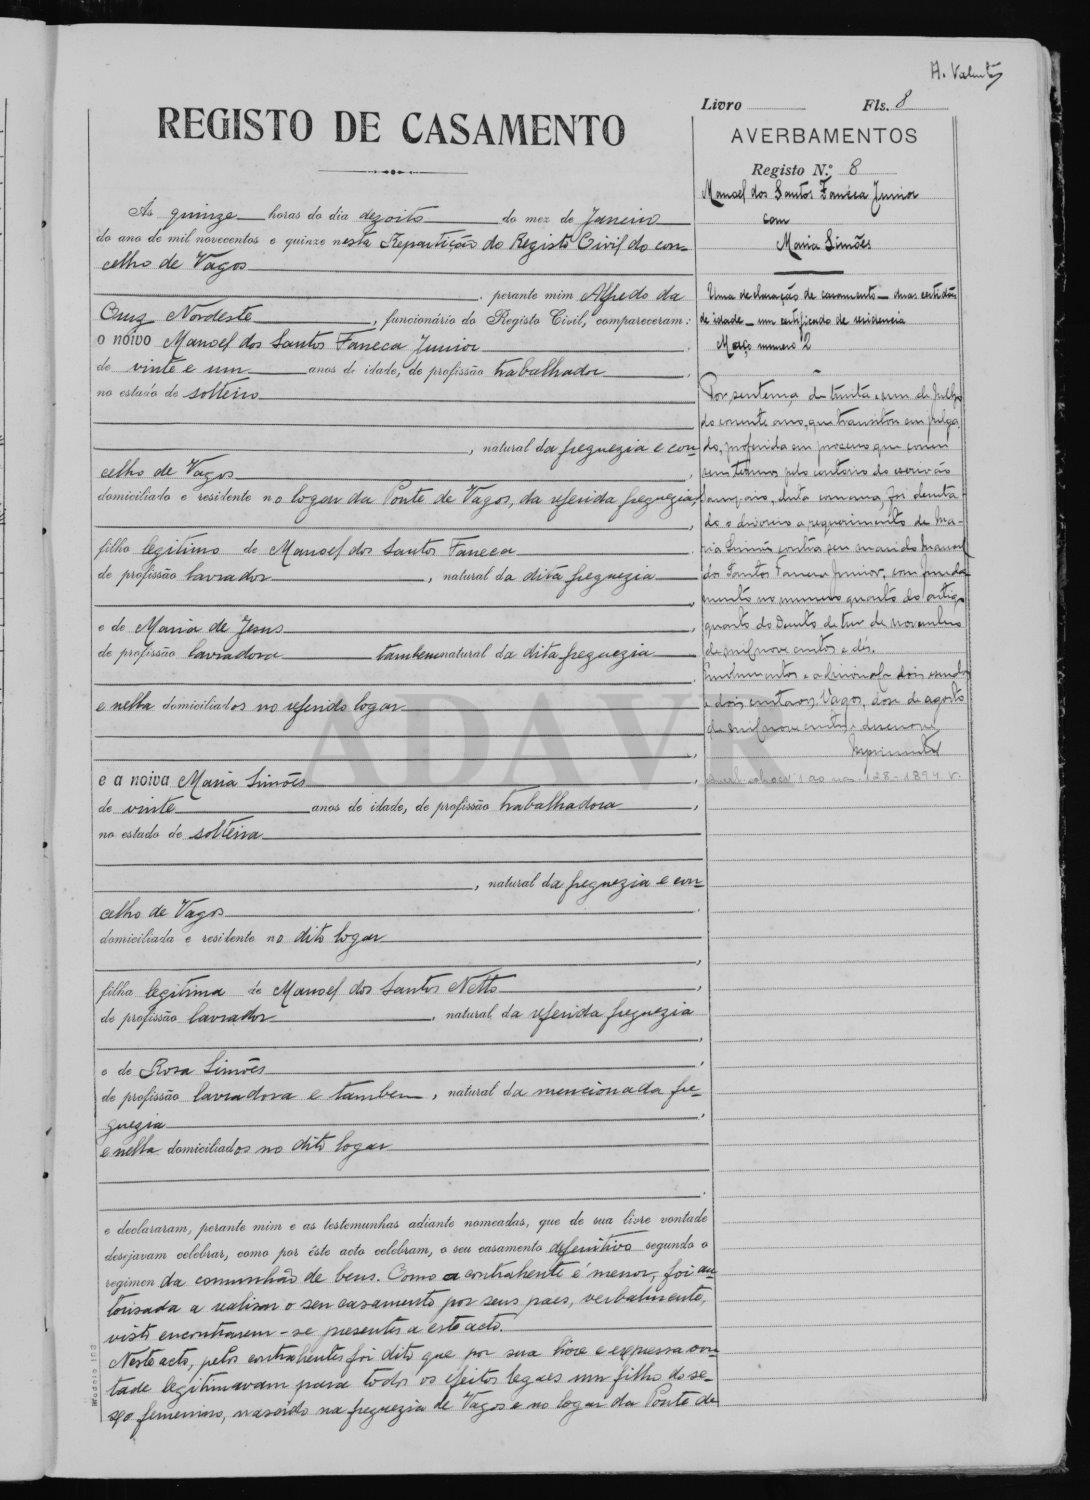 A. Valente
Livro Fls. 8
REGISTO DE CASAMENTO
AVERBAMENTOS
Registo N.º 8
Manoel dos Santos Faneca Junior
com
Maria Simões
Uma declaração de casamento — duas certidões
de idade — um certificado de residencia
Março numero 2
Por sentença de trinta e um de Julho
do corrente ano, que transitou em julga
do, proferida em processo que correu
seus termos pelo cartorio do escrivão
desta comarca, foi decreta
do o divorcio a requerimento de Ma-
ria Simões contra seu marido Manoel
dos Santos Faneca Junior, com funda
mento no numero quarto do artigo
quarto do Decreto de tres de novembro
de mil nove centos e dés.
Emolumentos e adicionala dois escudos
e dois centavos. Vagos, de agosto
de mil nove centos e desenove
ás quinze horas do dia dezoito do mez de Janeiro
do ano de mil novecentos e quinze nesta Repartição do Registo Civil do con-
celho de Vagos
, perante mim Alfredo da
Cruz Nordeste, funcionário do Registo Civil, compareceram:
o noivo Manoel dos Santos Faneca Junior
de vinte e um anos de idade, de profissão trabalhador,
no estado de solteiro
, natural da freguezia e con-
celho de Vagos,
domiciliado e residente no logar da Ponte de Vagos, da referida freguezia,
filho legitimo de Manoel dos Santos Faneca
de profissão lavrador, natural da dita freguezia
e de Maria de Jesus,
de profissão lavradora tambem natural da dita freguezia
e nella domiciliados no referido logar
ADAVR
e a noiva Maria Simões,
de vinte anos de idade, de profissão trabalhadora,
no estado de solteira
, natural da freguezia e con-
celho de Vagos,
domiciliada e residente no dito logar
filha legitima de Manoel dos Santos Netto,
de profissão lavrador, natural da referida freguezia
e de Rosa Simões,
de profissão lavradora e tambem, natural da mencionada fre-
guezia
e nella domiciliados no dito logar
e declararam, perante mim e as testemunhas adiante nomeadas, que de sua livre vontade
desejavam celebrar, como por êste acto celebram, o seu casamento definitivo segundo o
regimen da comunhão de bens. Como a contrahente é menor, foi au-
torisada a realisar o seu casamento por seus paes, verbalmente,
visto encontrarem-se presentes a este acto.
Neste acto, pelos contrahentes foi dito que por sua livre e expressa von-
tade legitimavam para todos os efeitos legaes um filho do se-
xo femenino, nascido na freguezia de Vagos e no logar da Ponte de
Modelo 103